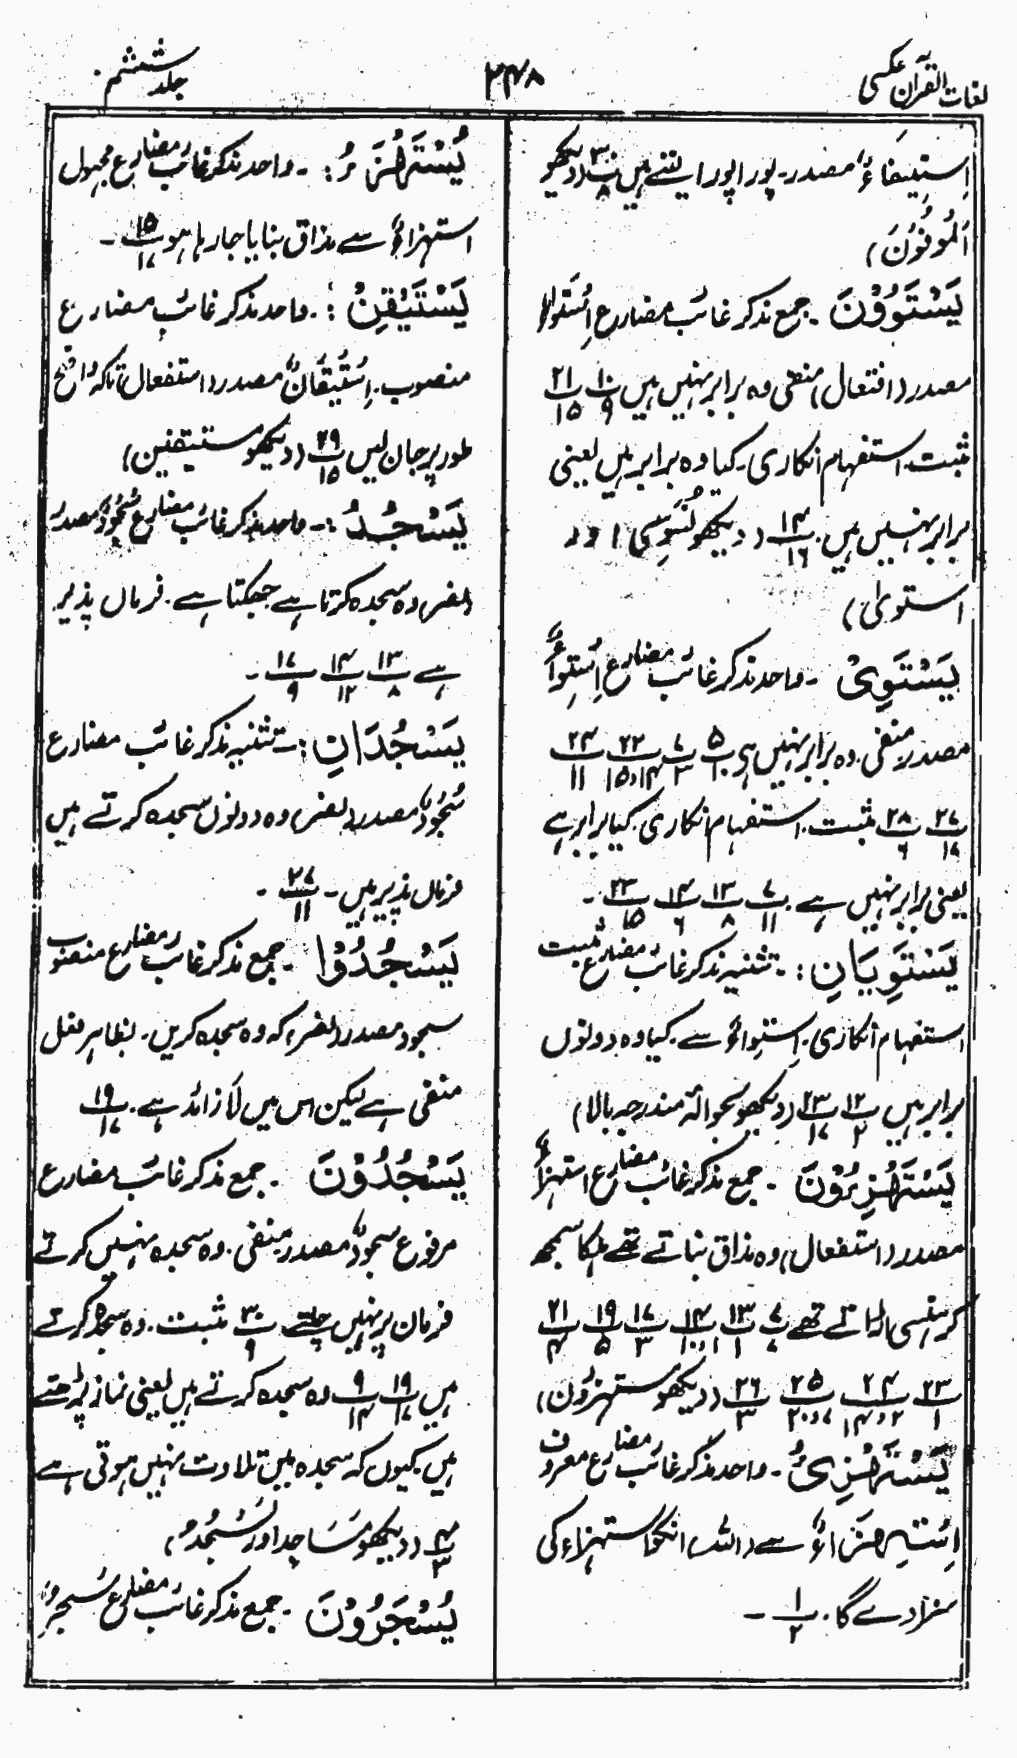 لغات القرآن عکسی
۲۴۸
جلد ششم
اِستِیفَاءٌ مصدر۔ پورا پورا لیتے ہیں ۳۰/۸ (دیکھو
اَلْمُوفُوْنَ)
یَسْتَوٗوْنَ ۔ جمع مذکر غائب مضارع اِسْتَوَاءٌ
مصدر (افتعال) منفی وہ برابر نہیں ہیں ۱۰/۹ ۲۱/۱۵
مثبت۔ استفہام انکاری۔ کیا وہ برابر ہیں یعنی
برابر نہیں ہیں۔ ۱۴/۱۶ (دیکھو نُسَوِّی اور
استویٰ)
یَسْتَوِیْ ۔ واحد مذکر غائب مضارع اِسْتِوَاءٌ
مصدر۔ منفی۔ وہ برابر نہیں ہے ۵/۱۰ ۷/۳ ۲۲/۱۴،۱۵ ۲۴/۱۱
۲۷/۱۷ ۲۸/۶ مثبت۔ استفہام انکاری۔ کیا برابر ہے
یعنی برابر نہیں ہے ۔ ۷/۱۱ ۱۳/۸ ۱۴/۶ ۲۳/۱۵ ۔
یَسْتَوِیَانِ : ۔ تثنیہ مذکر غائب مضارع مثبت
استفہام انکاری۔ اِسْتِوَاءٌ سے۔ کیا وہ دونوں
برابر ہیں ۱۲/۲ ۲۳/۱۷ (دیکھو بحوالہ مندرجہ بالا)
یَسْتَہْزِءُوْنَ ۔ جمع مذکر غائب مضارع استہزاءٌ
مصدر (استفعال) وہ مذاق بناتے تھے ہلکا سمجھ
کر ہنسی اڑاتے تھے ۷/۷ ۱۳/۱ ۱۴/۱،۱۰ ۱۷/۳ ۱۹/۵ ۲۱/۴
۲۳/۱ ۲۴/۲،۱۴ ۲۵/۷،۲۰ ۲۶/۳ (دیکھو مستہزؤن)
یَسْتَہْزِیُٔ ۔ واحد مذکر غائب مضارع معروف
اِسْتِہْزَاءٌ سے (اللہ) انکو استہزاء کی
سزا دے گا۔ ۱/۲ ۔
یُسْتَہْزَءُ : ۔ واحد مذکر غائب مضارع مجہول
استہزاءٌ سے مذاق بنایا جا رہا ہو ۱۵/۱۷ ۔
یَسْتَیْقِنُ : ۔ واحد مذکر غائب مضارع
منصوب۔ اِسْتِیْقَانٌ مصدر (استفعال) تاکہ واضح
طور پر جان لیں ۲۹/۱۵ (دیکھو مستیقنین)
یَسْجُدُ : ۔ واحد مذکر غائب مضارع سُجُوْدٌ مصدر
(نصر) وہ سجدہ کرتا ہے جھکتا ہے۔ فرماں پذیر
ہے ۱۳/۸ ۱۴/۱۲ ۱۷/۹ ۔
یَسْجُدَانِ : ۔ تثنیہ مذکر غائب مضارع
سُجُوْدٌ مصدر (نصر) وہ دونوں سجدہ کرتے ہیں
فرماں پذیر ہیں۔ ۲۷/۱۱ ۔
یَسْجُدُوْا ۔ جمع مذکر غائب مضارع منصوب
سجود مصدر (نصر) کہ وہ سجدہ کریں۔ بظاہر فعل
منفی ہے لیکن اس میں لَا زائد ہے۔ ۱۹/۱۷
یَسْجُدُوْنَ ۔ جمع مذکر غائب مضارع
مرفوع سجودٌ مصدر منفی۔ وہ سجدہ نہیں کرتے
فرمان پر نہیں چلتے ۳۰/۹ مثبت۔ وہ سجدہ کرتے
ہیں ۱۹/۱۷ ۹/۱۴ وہ سجدہ کرتے ہیں یعنی نماز پڑھتے
ہیں۔ کیوں کہ سجدہ میں تلاوت نہیں ہوتی ہے
۴/۳ (دیکھو مَسَاجِد اور نَسْجُدُ)
یُسْجَرُوْنَ ۔ جمع مذکر غائب مضارع سَجْرٌ